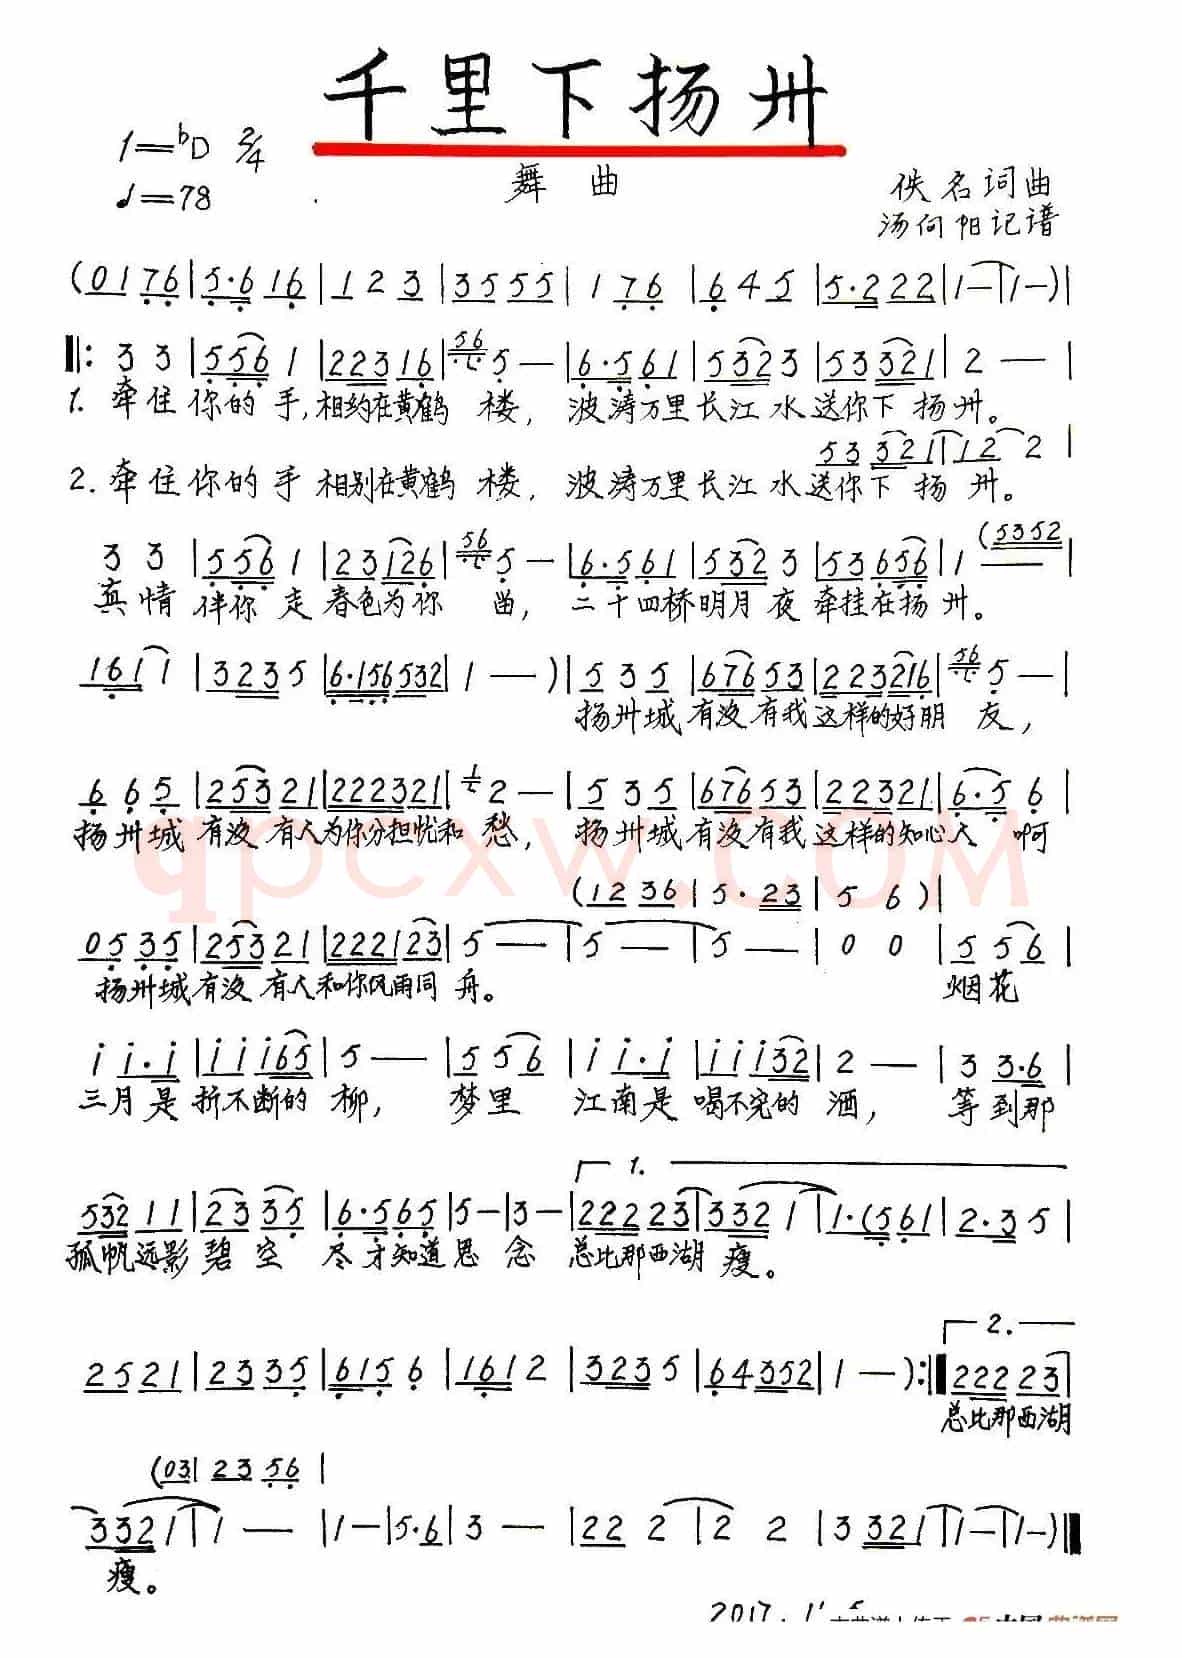 千里下扬州
1=♭D 2/4
舞曲
♩=78
佚名词曲
汤向阳记谱
(0 1 7 6 | 5·6 1 6 | 1 2 3 | 3 5 5 5 | 1 7 6 | 6 4 5 | 5·2 2 2 | 1 — | 1 —) |
‖: 3 3 | 5 5 6 1 | 2 2 3 1 6 | 56 5 — | 6·5 6 1 | 5 3 2 3 | 5 3 3 2 1 | 2 — |
1. 牵住你的手,相约在黄鹤楼,波涛万里长江水送你下扬州。
5 3 3 2 1 | 1 2 2 |
2. 牵住你的手相别在黄鹤楼,波涛万里长江水送你下扬州。
(5 3 5 2
3 3 | 5 5 6 1 | 2 3 1 2 6 | 56 5 — | 6·5 6 1 | 5 3 2 3 | 5 3 6 5 6 | 1 —
真情伴你走春色为你曲,二十四桥明月夜牵挂在扬州。
1 6 1 1 | 3 2 3 5 | 6·1 5 6 5 3 2 | 1 — ) | 5 3 5 | 6 7 6 5 3 | 2 2 3 2 1 6 | 56 5 — |
扬州城有没有我这样的好朋友,
6 6 5 | 2 5 3 2 1 | 2 2 2 3 2 1 | 1 2 — | 5 3 5 | 6 7 6 5 3 | 2 2 3 2 1 | 6·5 6 |
扬州城有没有人为你分担忧和愁,扬州城有没有我这样的知心人啊
(1 2 3 6 | 5·2 3 | 5 6 ) |
0 5 3 5 | 2 5 3 2 1 | 2 2 2 1 2 3 | 5 — | 5 — | 5 — | 0 0 | 5 5 6 |
扬州城有没有人和你风雨同舟。烟花
i i·i | i i i 6 5 | 5 — | 5 5 6 | i i·i | i i i 3 2 | 2 — | 3 3·6 |
三月是折不断的柳,梦里江南是喝不完的酒,等到那
1.
5 3 2 1 1 | 2 3 3 5 | 6·5 6 5 | 5 — | 3 — | 2 2 2 2 3 | 3 3 2 1 | 1·(5 6 1 | 2·3 5 |
孤帆远影碧空尽才知道思念总比那西湖瘦。
2.
2 5 2 1 | 2 3 3 5 | 6 1 5 6 | 1 6 1 2 | 3 2 3 5 | 6 4 3 5 2 | 1 — ) :‖ 2 2 2 2 3 |
总比那西湖
(0 3 | 2 3 5 6 |
3 3 2 1 | 1 — | 1 — | 5·6 | 3 — | 2 2 2 | 2 2 | 3 3 2 1 | 1 — | 1 —) ‖
瘦。
qpcxw.COM
2017.